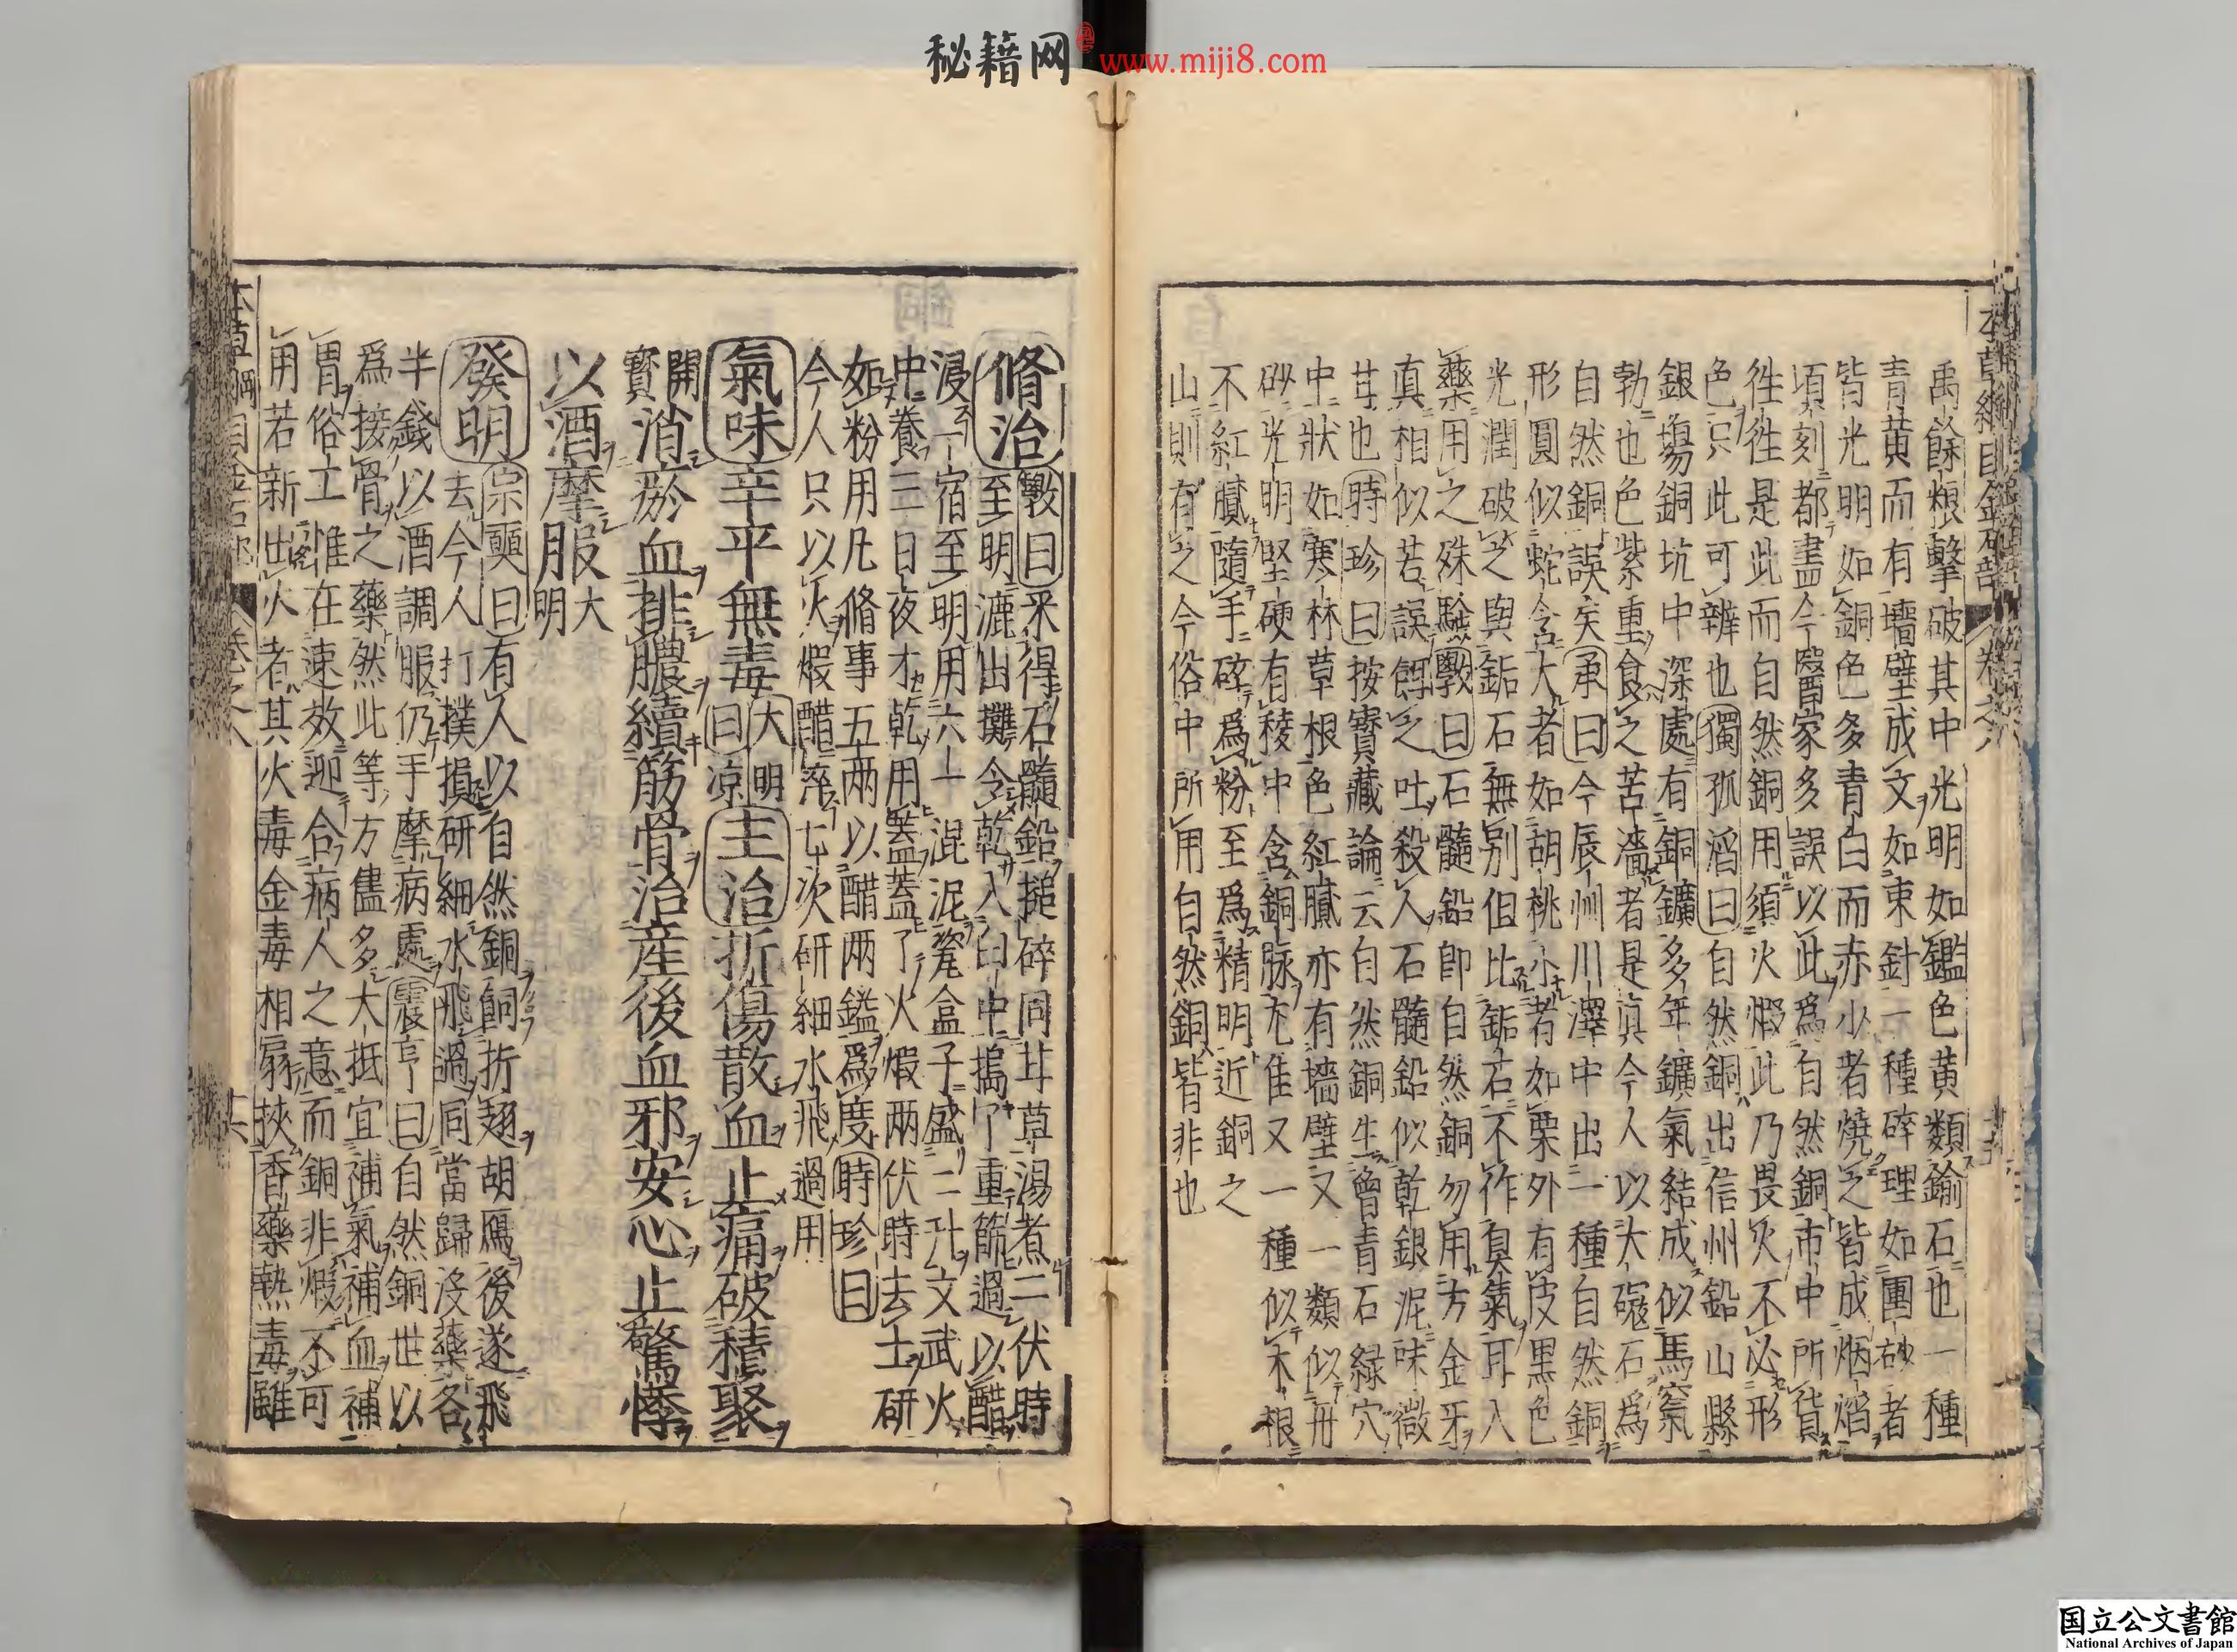 秘籍网 www.miji8.com
本草綱目金石部 卷之八
禹餘粮擊破其中光明如鑑色黄類鍮石也一種
青黄而有墻壁成文如束針一種碎理如團砂者
皆光明如銅色多青白而赤少者燒之皆成烟焰
頃刻都盡今醫家多誤以此爲自然銅市中所貨
徃徃是此而自然銅用須火煅此乃畏火不必形
色只此可辨也獨孤滔曰自然銅出信州鉛山縣
銀塲銅坑中深處有銅鑛多年鑛氣結成似馬氣
勃也色紫重食之苦濇者是真今人以大碗石爲
自然銅誤矣承曰今辰州川澤中出一種自然銅
形圓似蛇含大者如胡桃小者如栗外有皮黒色
光潤破之與鉐石無别但比鉐石不作臭氣耳入
藥用之殊驗斆曰石髓鉛即自然銅勿用方金牙
真相似若誤餌之吐殺人石髓鉛似乾銀泥味微
甘也時珍曰按寳藏論云自然銅生曾青石緑穴
中狀如寒林草根色紅膩亦有墙壁又一類似丹
砂光明堅硬有稜中含銅脉尤佳又一種似木根
不紅膩隨手碎爲粉至爲精明近銅之
山則有之今俗中所用自然銅皆非也
脩治斆曰采得石髓鉛搥碎同甘草湯煮一伏時
至明漉出攤令乾入臼中搗了重篩過以醋
浸一宿至明用六一混泥瓷盒子盛二升文武火
中養三日夜才乾用蓋蓋了火煅两伏時去土研
如粉用凡脩事五两以醋两鎰爲度時珍曰
今人只以火煅醋淬七次研細水飛過用
氣味辛平無毒大明曰凉主治折傷散血止痛破積聚
開寳消瘀血排膿續筋骨治産後血邪安心止驚悸
以酒摩服大明
發明宗奭曰有人以自然銅飼折翅胡鴈後遂飛
去今人打撲損研細水飛過同當歸没藥各
半錢以酒調服仍手摩病處震亨曰自然銅世以
爲接骨之藥然此等方儘多大抵宜補氣補血補
胃俗工惟在速效迎合病人之意而銅非煅不可
用若新出火者其火毒金毒相扇挾香藥熱毒雖
本草綱目金石部 卷之八 十六
国立公文書館
National Archives of Japan